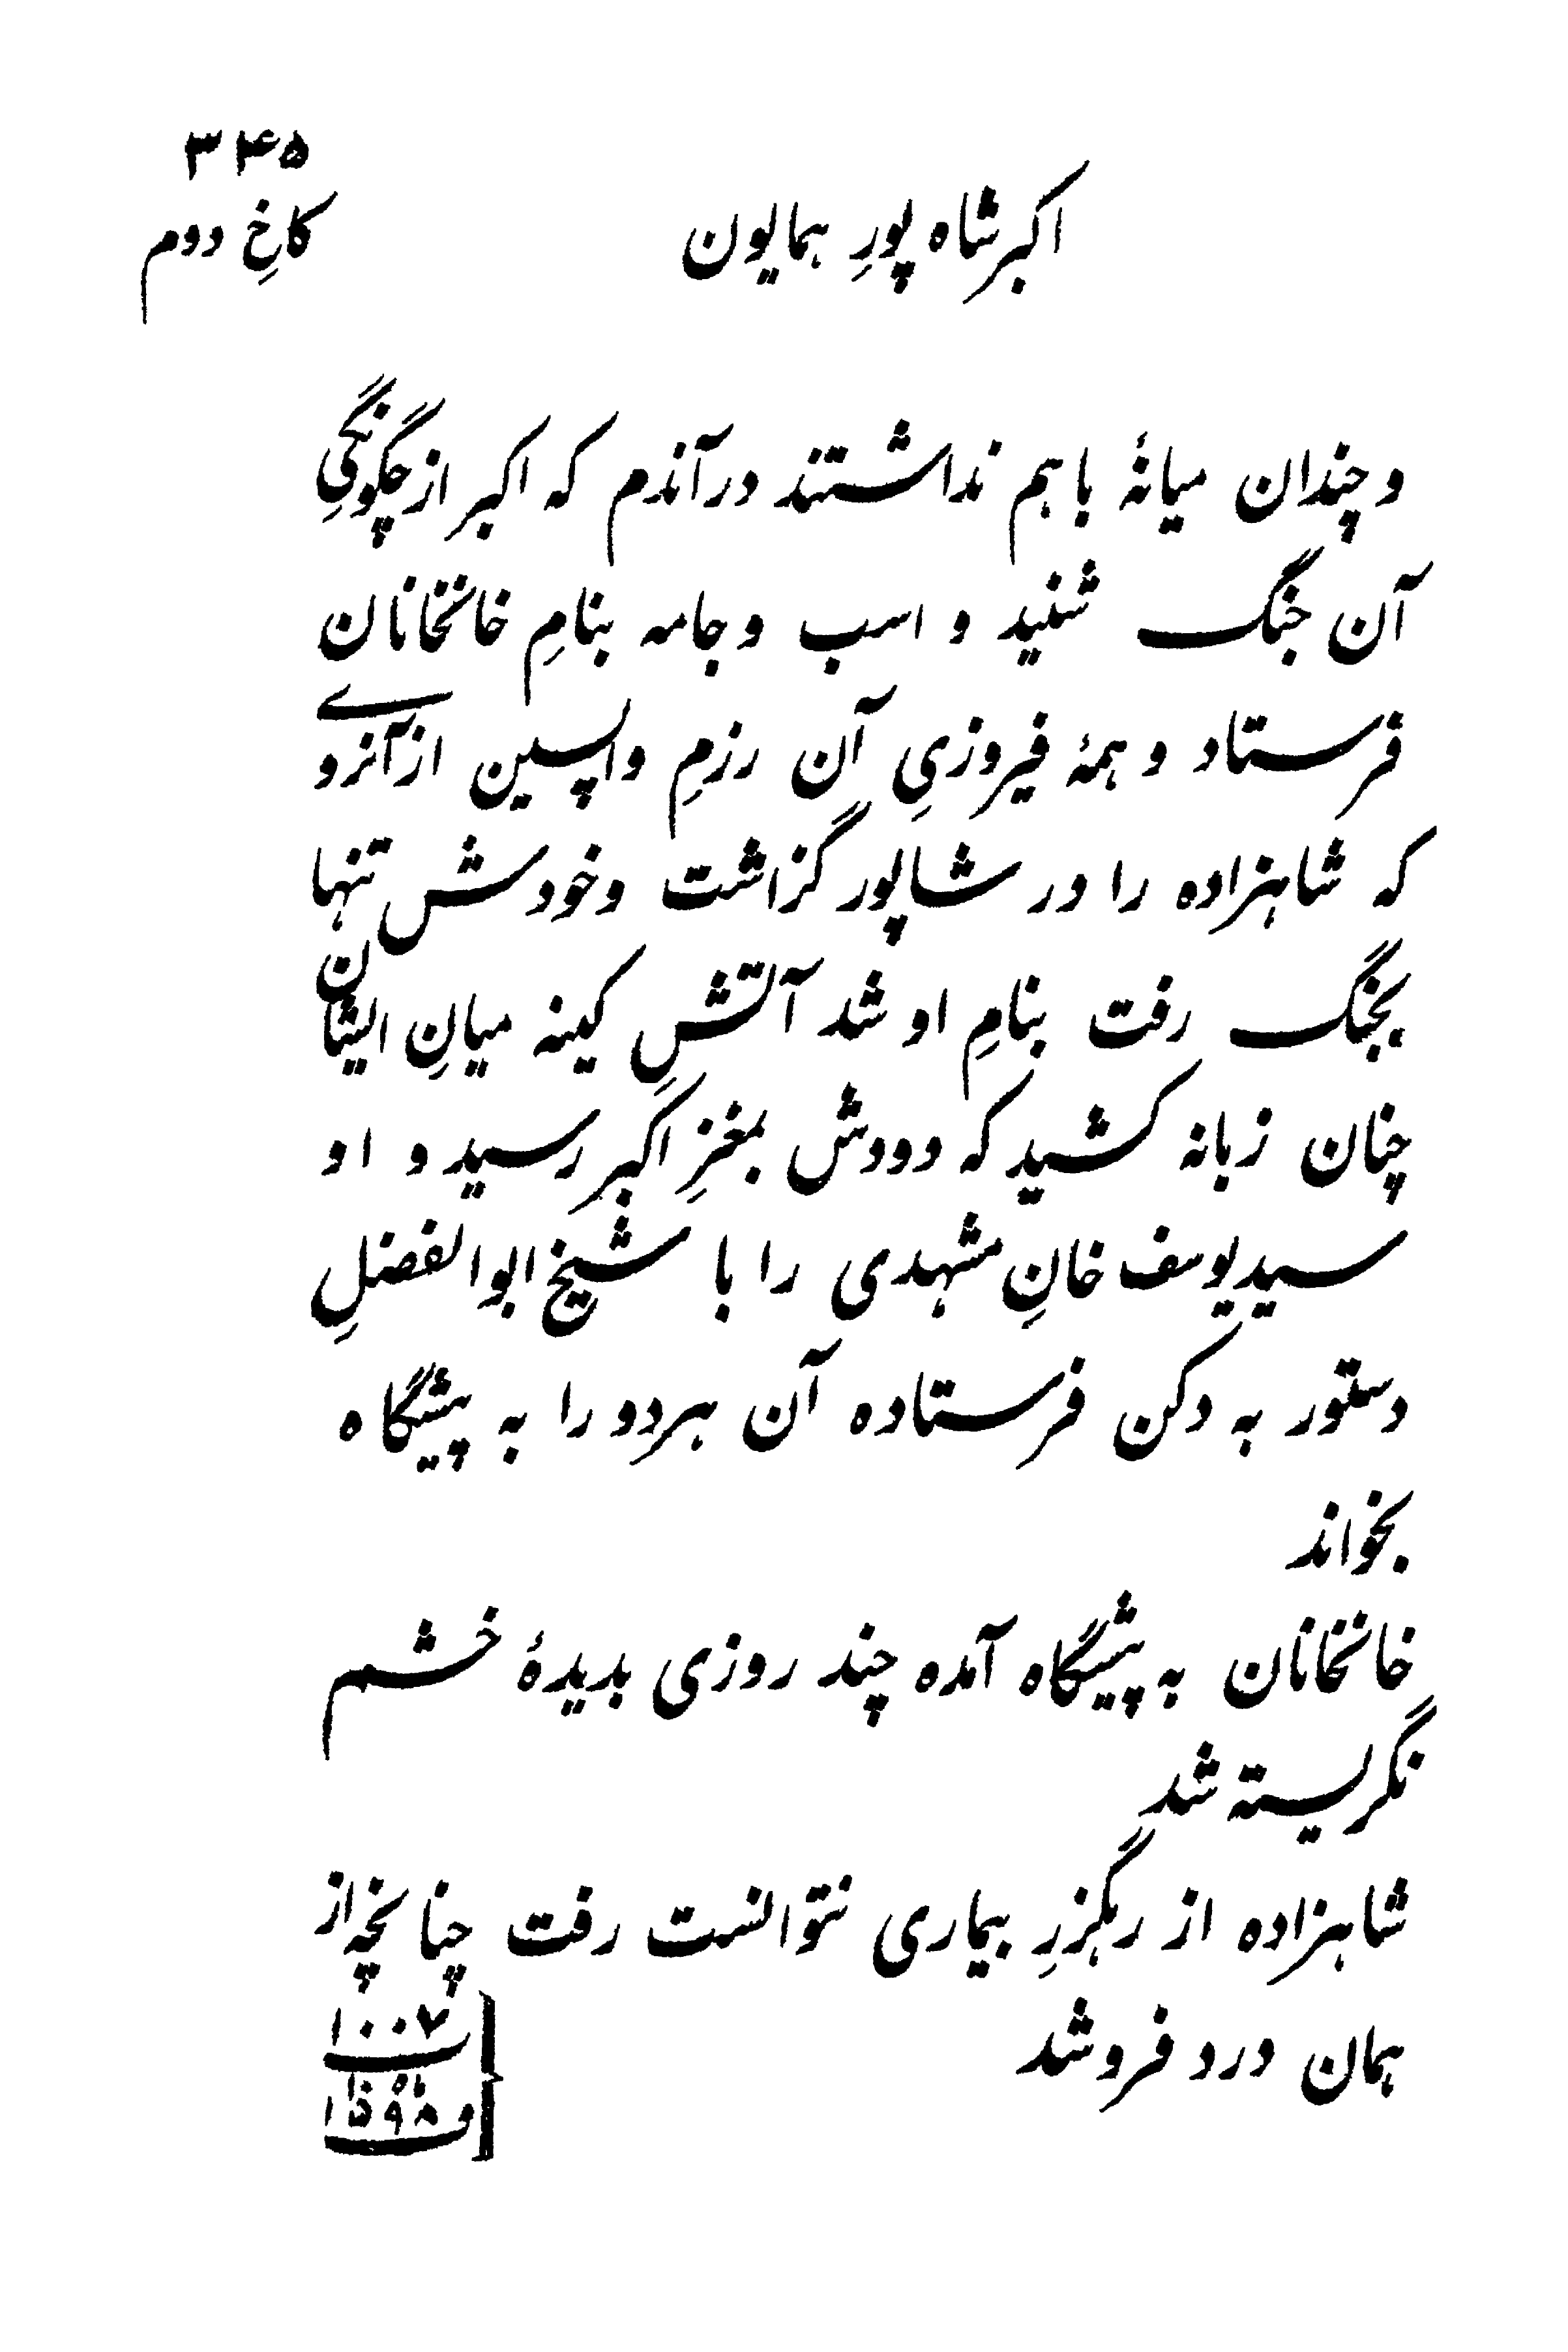 ۳۴۵
اکبرشاه پورِ همایون
کاخِ دوم
و چندان میانهٔ باهم نداشتند درآندم که اکبر از چگونگیِ
آن جنگ شنید و اسب و جامه بنامِ خانخانان
فرستاد و همهٔ فیروزیِ آن رزمِ واپسین ازآنروے
که شاهزاده را در شاپور گزاشت و خودش تنها
بجنگ رفت بنامِ او شد آتشِ کینه میانِ ایشان
چنان زبانه کشید که دودش بمغزِ اکبر رسید و او
سید یوسف خانِ مشهدی را با شیخ ابوالفضلِ
دستور به دکن فرستاده آن هردو را به پیشگاه
بخواند
خانخانان به پیشگاه آمده چند روزی بدیدهٔ خشم
نگریسته شد
شاهزاده از رهگزرِ بیماری نتوانست رفت چنانچه از
همان درد فروشد
۱۰۰۷
و ۱۵۹۸